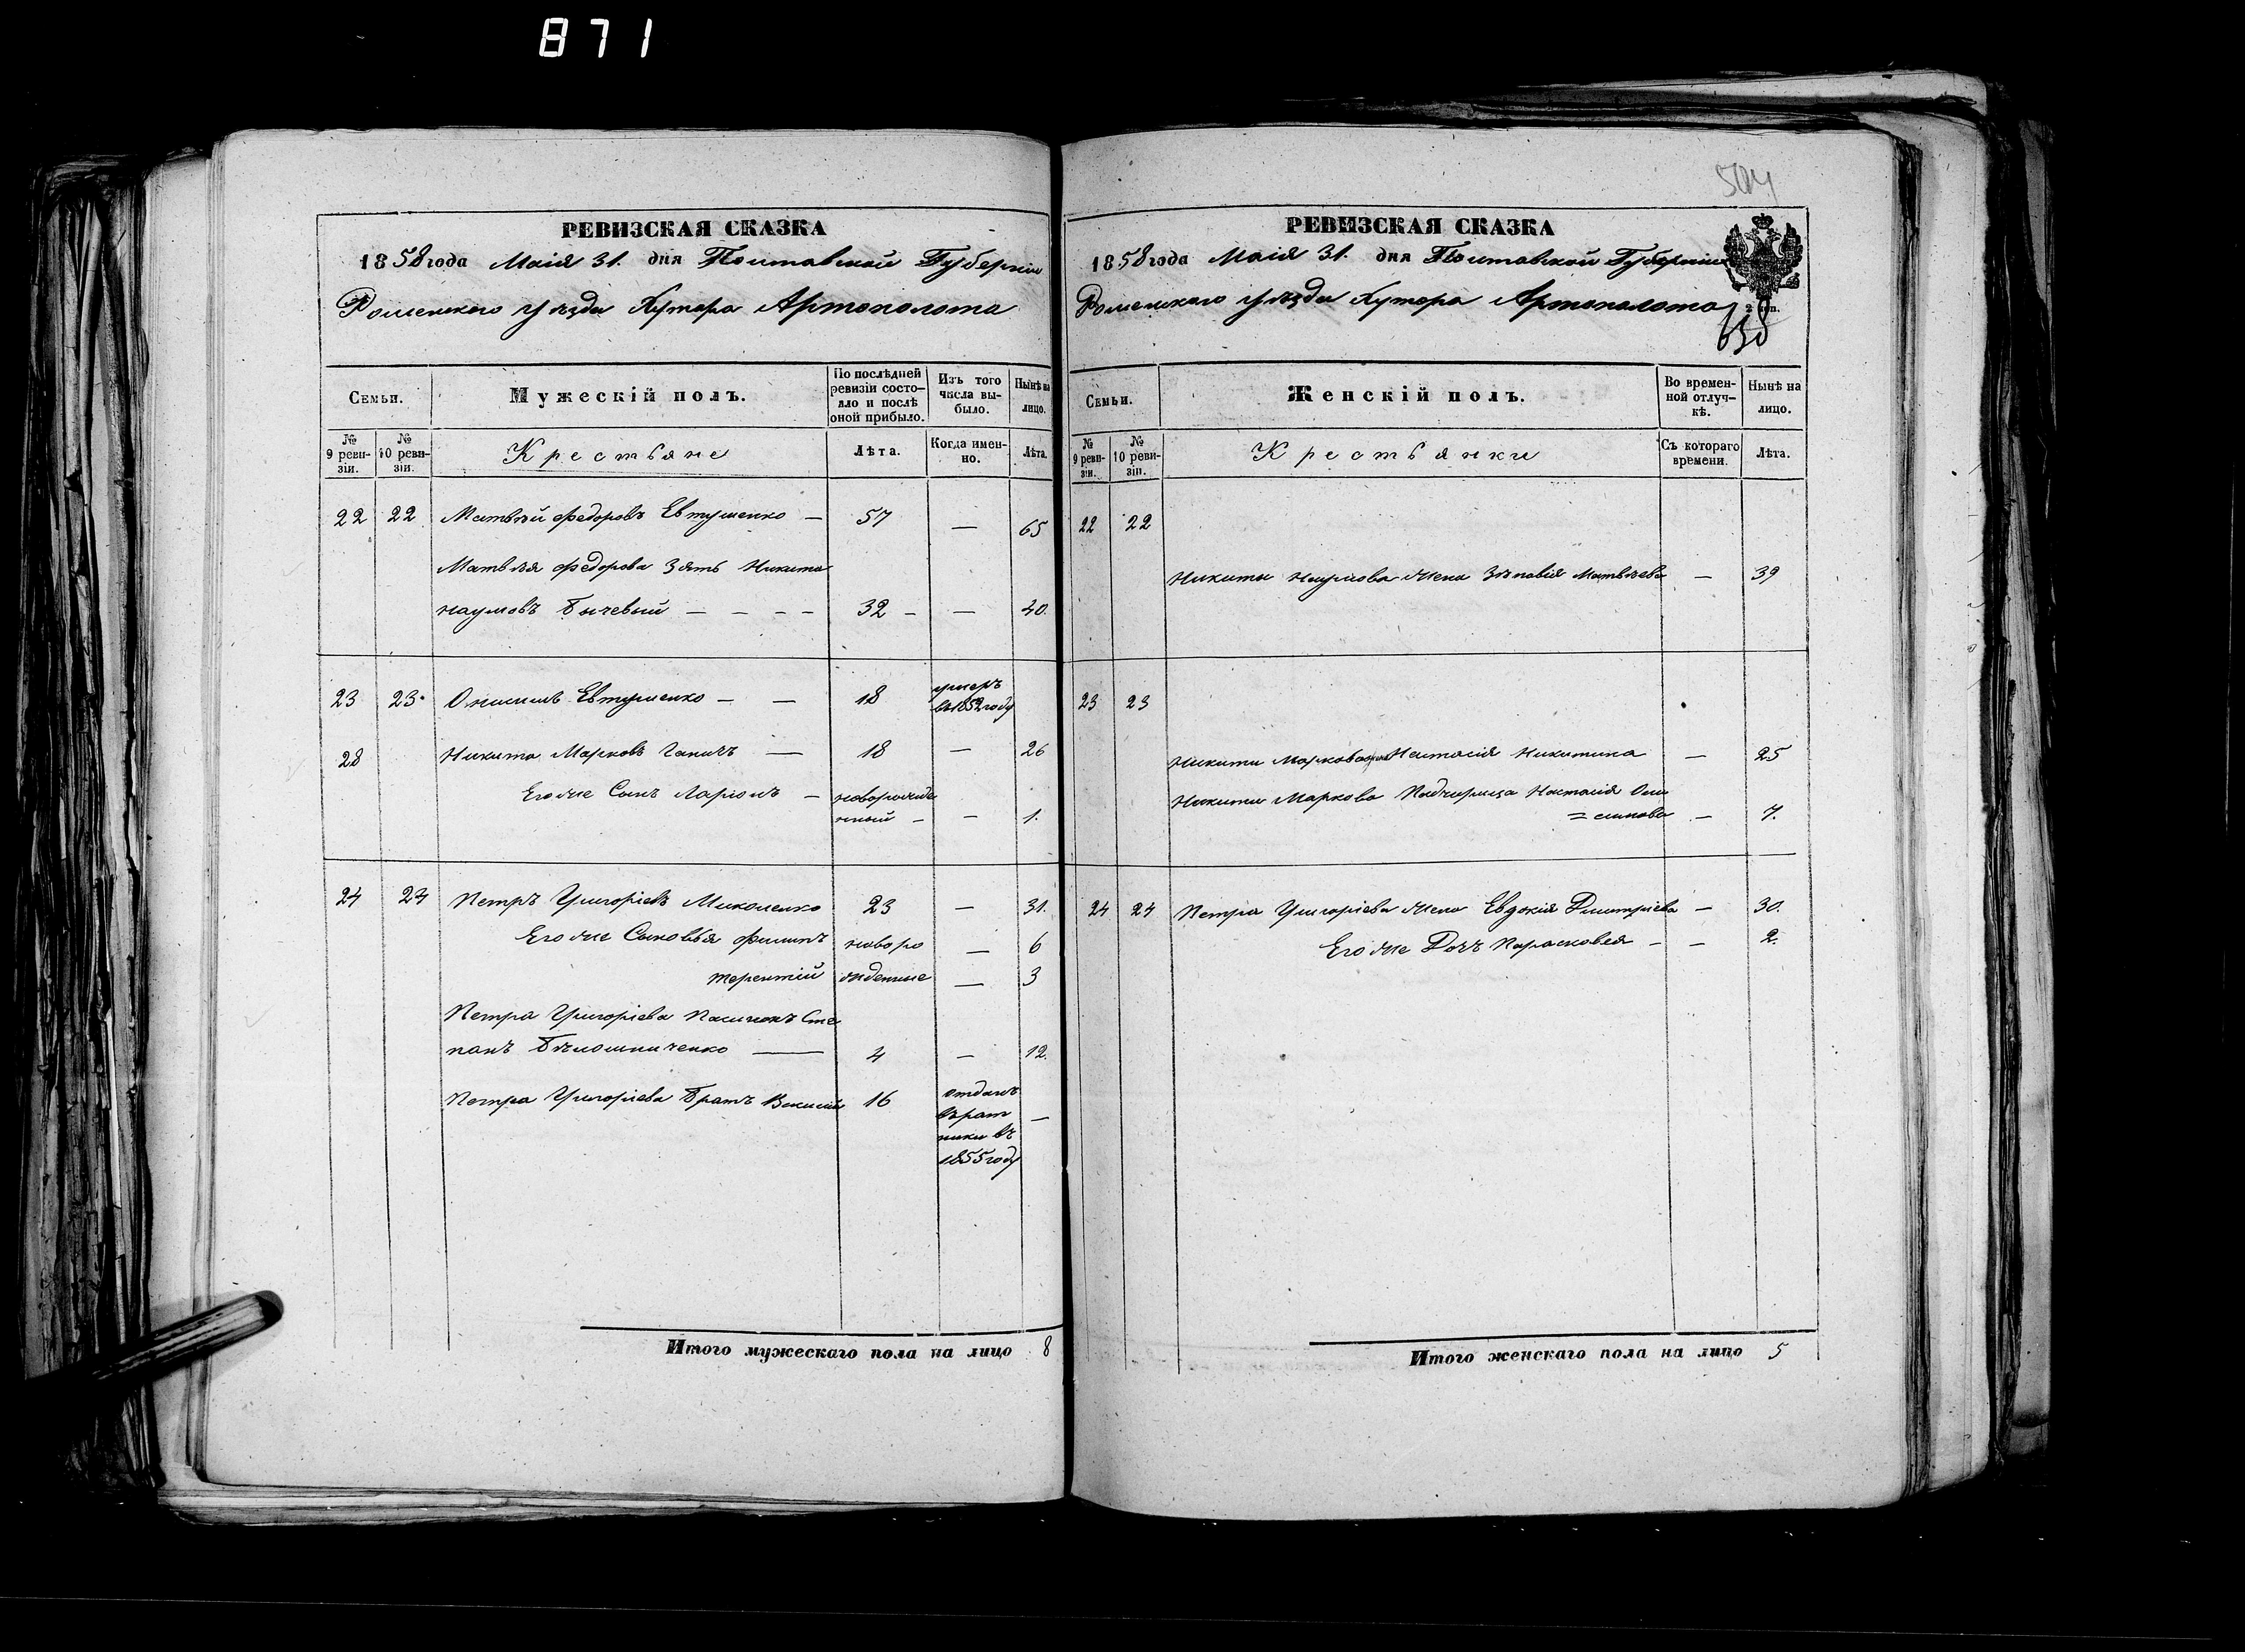 871
РЕВИЗСКАЯ СКАЗКА
1858 года Маія 31. дня Полтавской Губерніи
Роменского уѣзда Хутора Артополота
Семьи.
Мужескій полъ.
По послѣдней ревизіи состояло и послѣ оной прибыло.
Изъ того числа выбыло.
Нынѣ на лицо.
№ 9 ревизіи.
№ 10 ревизіи.
Крестьяне
Лѣта.
Когда именно.
Лѣта.
22 22 Матвѣй Федоровъ Евтушенко — 57 — 65
Матвѣя Федорова Зять Никита
Наумовъ Бычевый — — — — 32 — — 40.
23 23. Онисимъ Евтушенко — — 18 умеръ въ 1852 году
28 Никита Марковъ — 18 — 26
Его же Сынъ Ларіонъ — новорожде
нный — — 1.
24 24 Петръ Григоріевъ Миколенко 23 — 31.
Его же Сыновья Филипъ новоро — 6
Терентій жденные — 3
Петра Григоріева Пасинокъ Сте
панъ Бѣлошниченко — 4 — 12.
Петра Григоріева Братъ 16 отданъ
въ рат —
ники въ
1855 году
Итого мужескаго пола на лицо 8
504
РЕВИЗСКАЯ СКАЗКА
1858 года Маія 31. дня Полтавской Губерніи
Роменского уѣзда Хутора Артополота
Семьи.
Женскій полъ.
Во временной отлучкѣ.
Нынѣ на лицо.
№ 9 ревизіи.
№ 10 ревизіи.
Крестьянки
Съ котораго времени.
Лѣта.
22 22
Никиты Наумова Жена Зѣновія Матвѣева — 39
23 23
Никиты Маркова жена Настасія Никитина — 25
Никиты Маркова Падчерица Настасія Они
=симова — 7.
24 24 Петра Григоріева Жена Евдокія Дмитріева — 30.
Его же Дочь Парасковея — — 2.
Итого женскаго пола на лицо 5